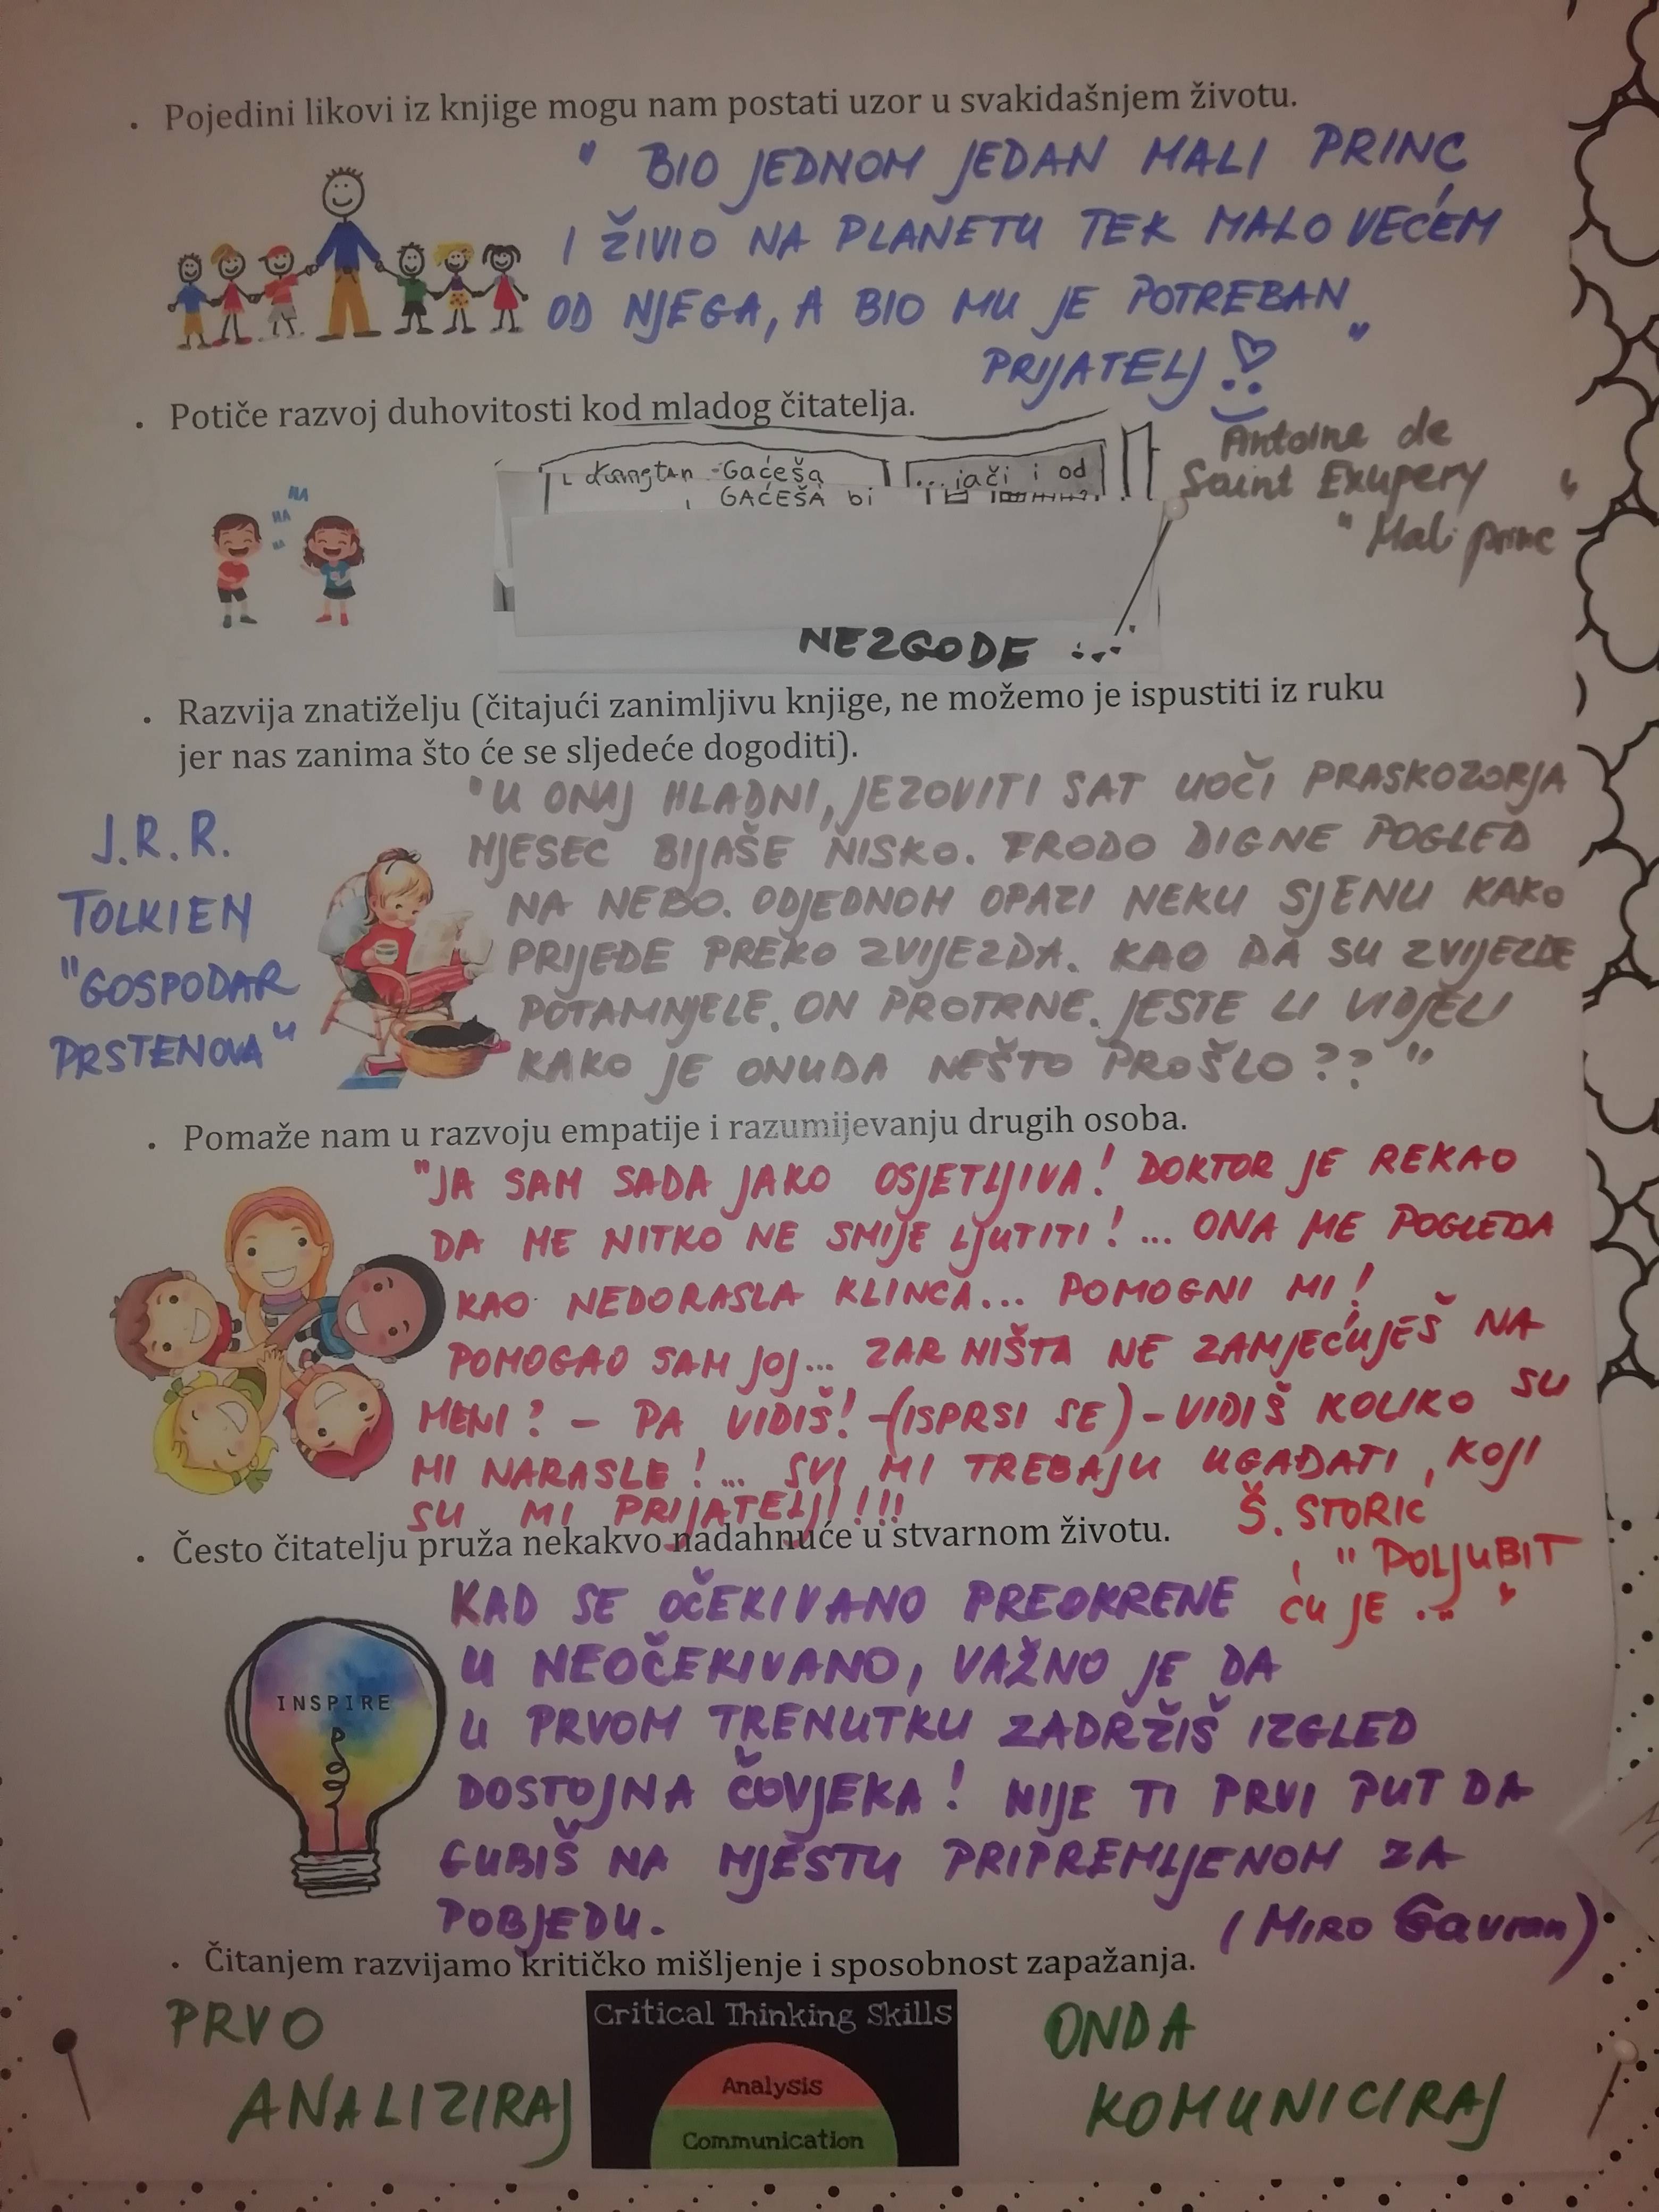 . Pojedini likovi iz knjige mogu nam postati uzor u svakidašnjem životu.
" BIO JEDNOM JEDAN MALI PRINC
I ŽIVIO NA PLANETU TEK MALO VEĆEM
OD NJEGA, A BIO MU JE POTREBAN
PRIJATELJ "
. Potiče razvoj duhovitosti kod mladog čitatelja.
Antoine de
Saint Exupery
"Mali princ"
HA
HA
HA
Gaćeša
...jači i od
GAĆEŠA bi
NEZGODE ...
. Razvija znatiželju (čitajući zanimljivu knjige, ne možemo je ispustiti iz ruku
jer nas zanima što će se sljedeće dogoditi).
"U ONAJ HLADNI, JEZOVITI SAT UOČI PRASKOZORJA
MJESEC BIJAŠE NISKO. FRODO DIGNE POGLED
NA NEBO. ODJEDNOM OPAZI NEKU SJENU KAKO
PRIJEĐE PREKO ZVIJEZDA. KAO DA SU ZVIJEZDE
POTAMNJELE. ON PROTRNE. JESTE LI VIDJELI
KAKO JE ONUDA NEŠTO PROŠLO ??"
J.R.R.
TOLKIEN
"GOSPODAR
PRSTENOVA"
. Pomaže nam u razvoju empatije i razumijevanju drugih osoba.
"JA SAM SADA JAKO OSJETLJIVA! DOKTOR JE REKAO
DA ME NITKO NE SMIJE LJUTITI! ... ONA ME POGLEDA
KAO NEDORASLA KLINCA... POMOGNI MI!
POMOGAO SAM JOJ... ZAR NIŠTA NE ZAMJEĆUJEŠ NA
MENI? - PA VIDIŠ! -(ISPRSI SE) - VIDIŠ KOLIKO SU
MI NARASLE! ... SVI MI TREBAJU UGAĐATI, KOJI
SU MI PRIJATELJI!!!
Š. STORIĆ
"POLJUBIT
ĆU JE ..."
. Često čitatelju pruža nekakvo nadahnuće u stvarnom životu.
INSPIRE
KAD SE OČEKIVANO PREOKRENE
U NEOČEKIVANO, VAŽNO JE DA
U PRVOM TRENUTKU ZADRŽIŠ IZGLED
DOSTOJNA ČOVJEKA! NIJE TI PRVI PUT DA
GUBIŠ NA MJESTU PRIPREMLJENOM ZA
POBJEDU.
(MIRO Gavran)
. Čitanjem razvijamo kritičko mišljenje i sposobnost zapažanja.
PRVO
ANALIZIRAJ
Critical Thinking Skills
Analysis
Communication
ONDA
KOMUNICIRAJ